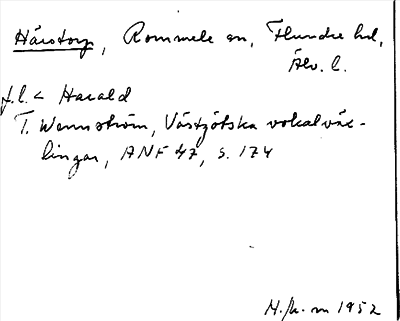 Härstorp, Rommele sn, Flundre hd,
Älv. l.
f.l. < Harald
T. Wennström, Västgötska vokalväx-
lingar, ANF 47, s. 174
M. 1952